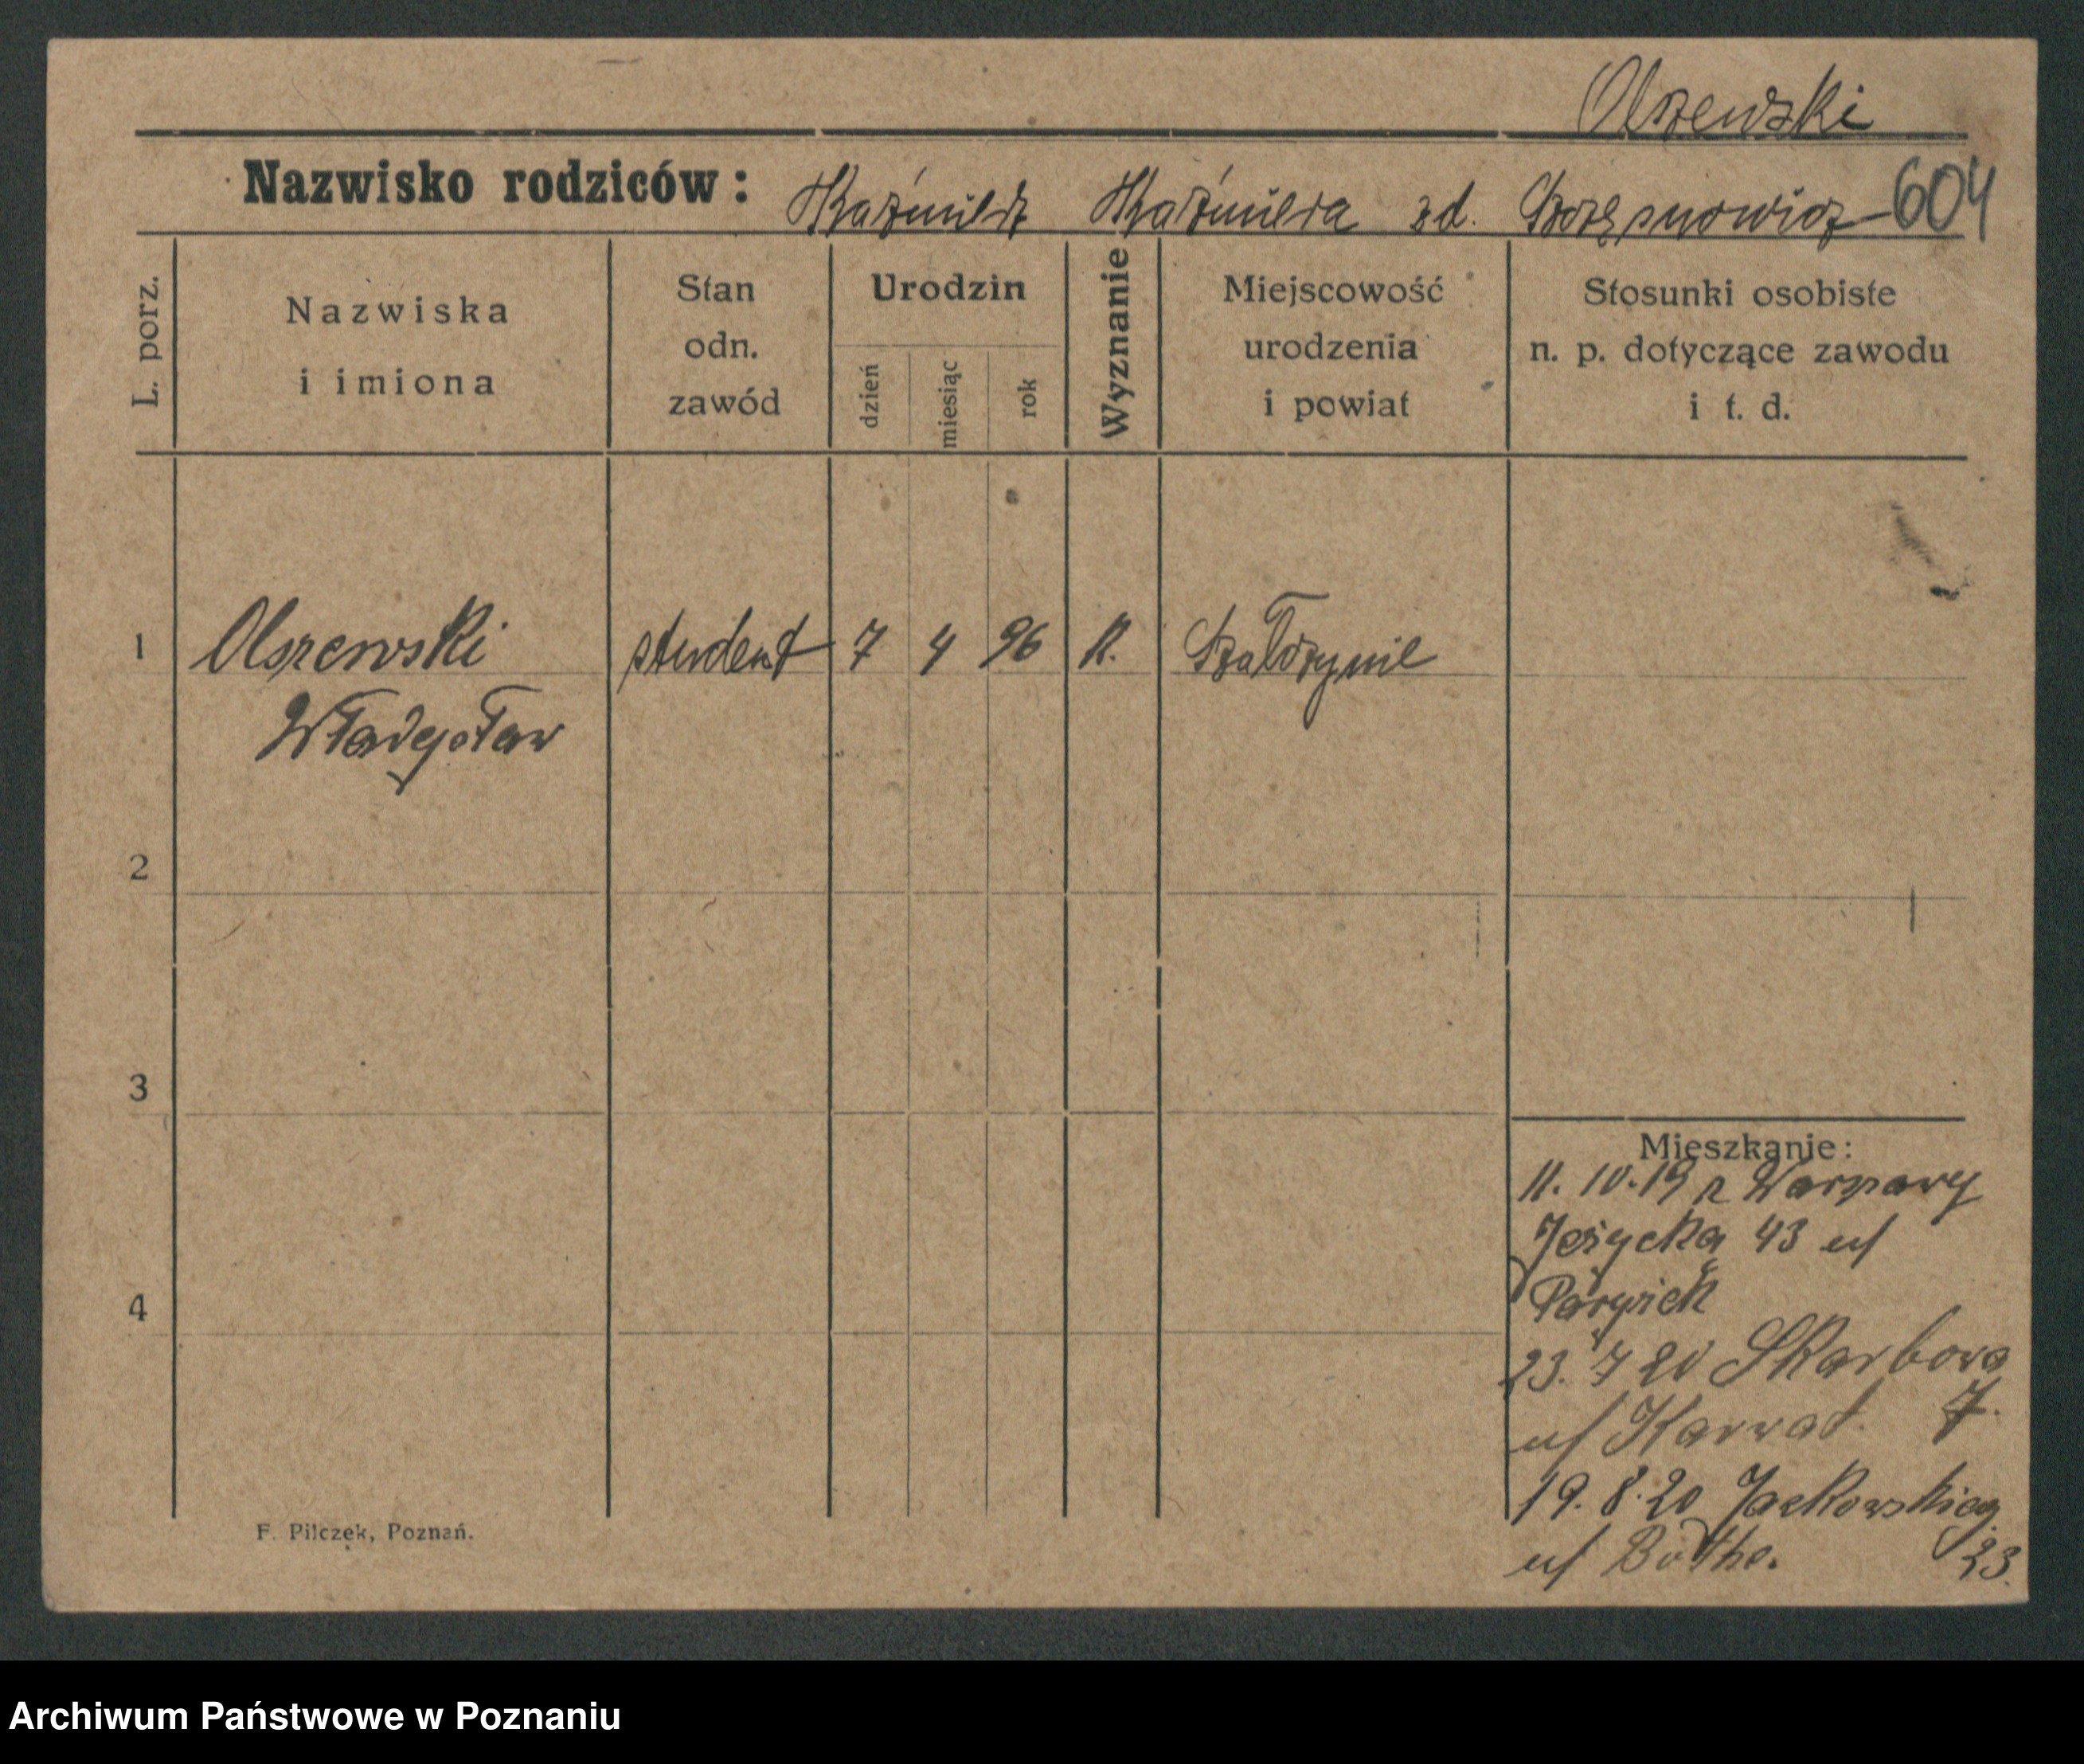 Olszewski
Nazwisko rodziców: Kaźmierz Kaźmiera zd. 604
L. porz.
Nazwiska i imiona
Stan odn. zawód
Urodzin
dzień
miesiąc
rok
Wyznanie
Miejscowość urodzenia i powiat
Stosunki osobiste n. p. dotyczące zawodu i t. d.
1 Olszewski student 7 4 96 K.
Władysław
2
3
4
Mieszkanie:
11.10.19 z Warszawy
Jeżycka 43 u/
23. 7 20 Skarbowa
u/ Karwat. 7.
19. 8. 20 Jackowskieg
u/ Bothe. 23.
F. Pilczek, Poznań.
Archiwum Państwowe w Poznaniu